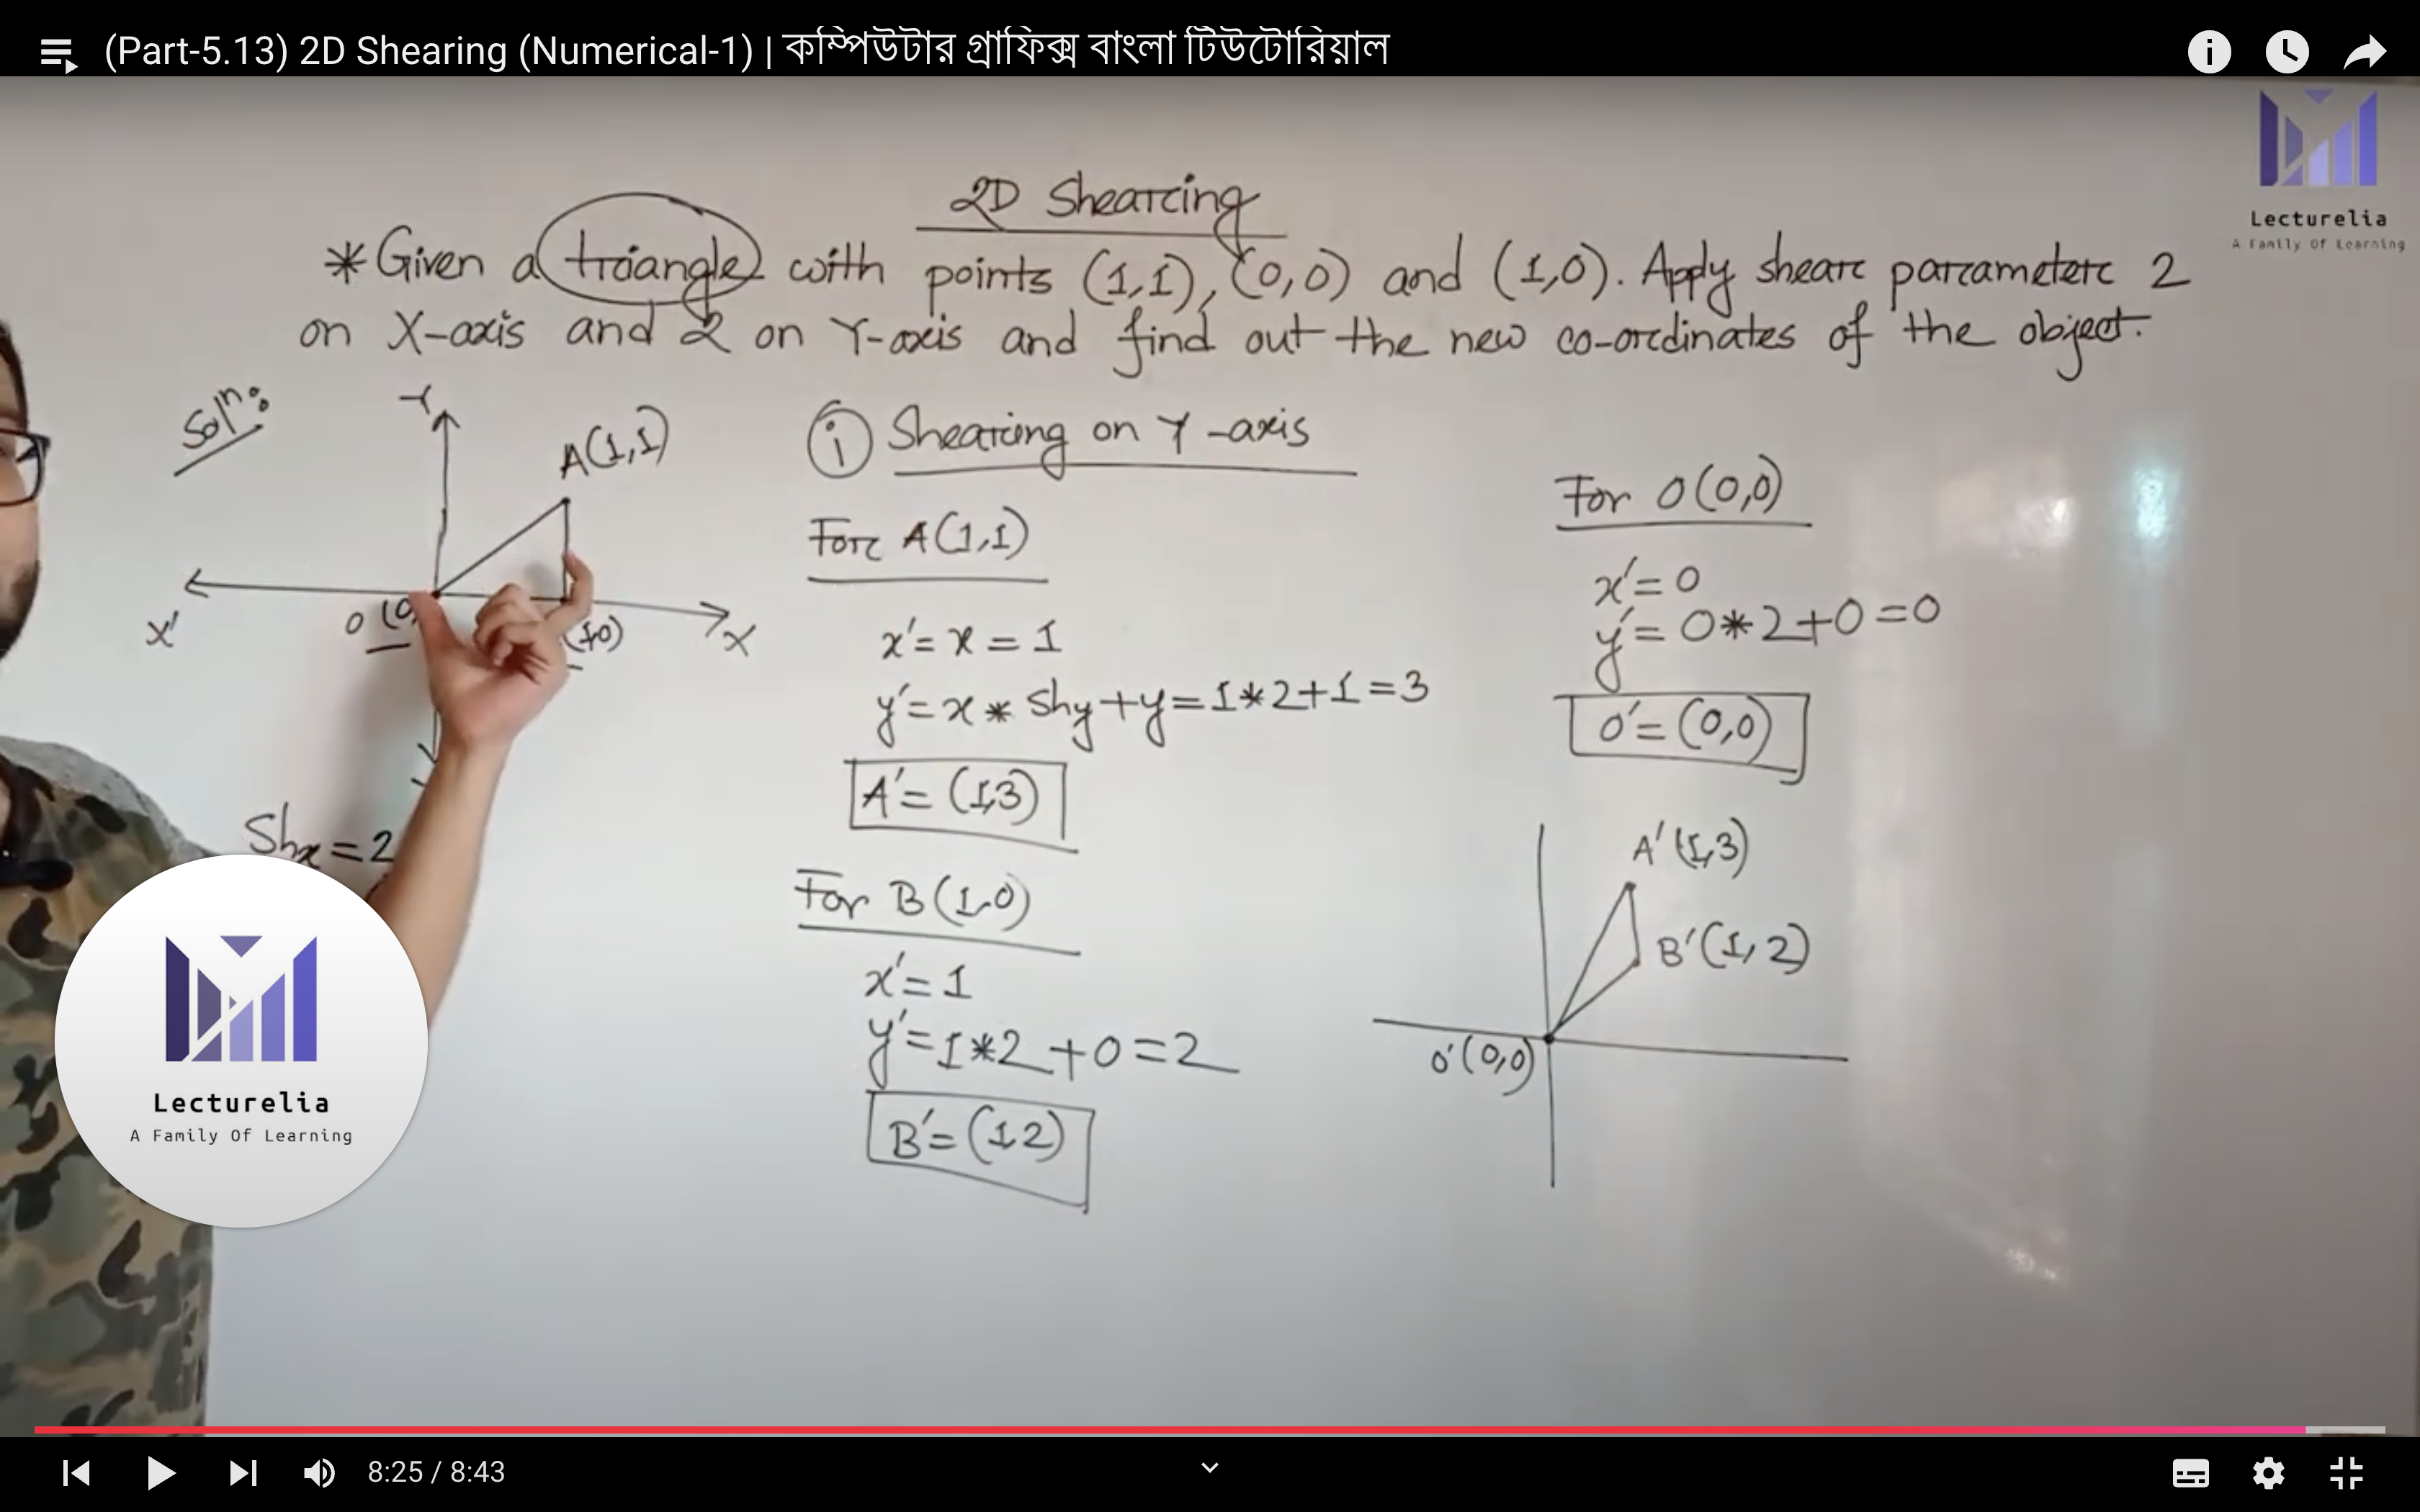 (Part-5.13) 2D Shearing (Numerical-1) | কম্পিউটার গ্রাফিক্স বাংলা টিউটোরিয়াল
Lecturelia
A Family Of Learning
2D Shearing
*Given a triangle with points (1,1), (0,0) and (1,0). Apply shear parameter 2
on X-axis and 2 on Y-axis and find out the new co-ordinates of the object.
Solⁿ:
Y
A(1,1)
X'
O (0,
(1,0)
X
Shx=2
i Shearing on Y-axis
For A(1,1)
x'= x = 1
y'= x * Shy+y=1*2+1=3
A'= (1,3)
For B(1,0)
x'=1
y'=1*2+0=2
B'=(1,2)
For O(0,0)
x'=0
y'=0*2+0=0
O'=(0,0)
A'(1,3)
B'(1,2)
O'(0,0)
Lecturelia
A Family Of Learning
8:25 / 8:43